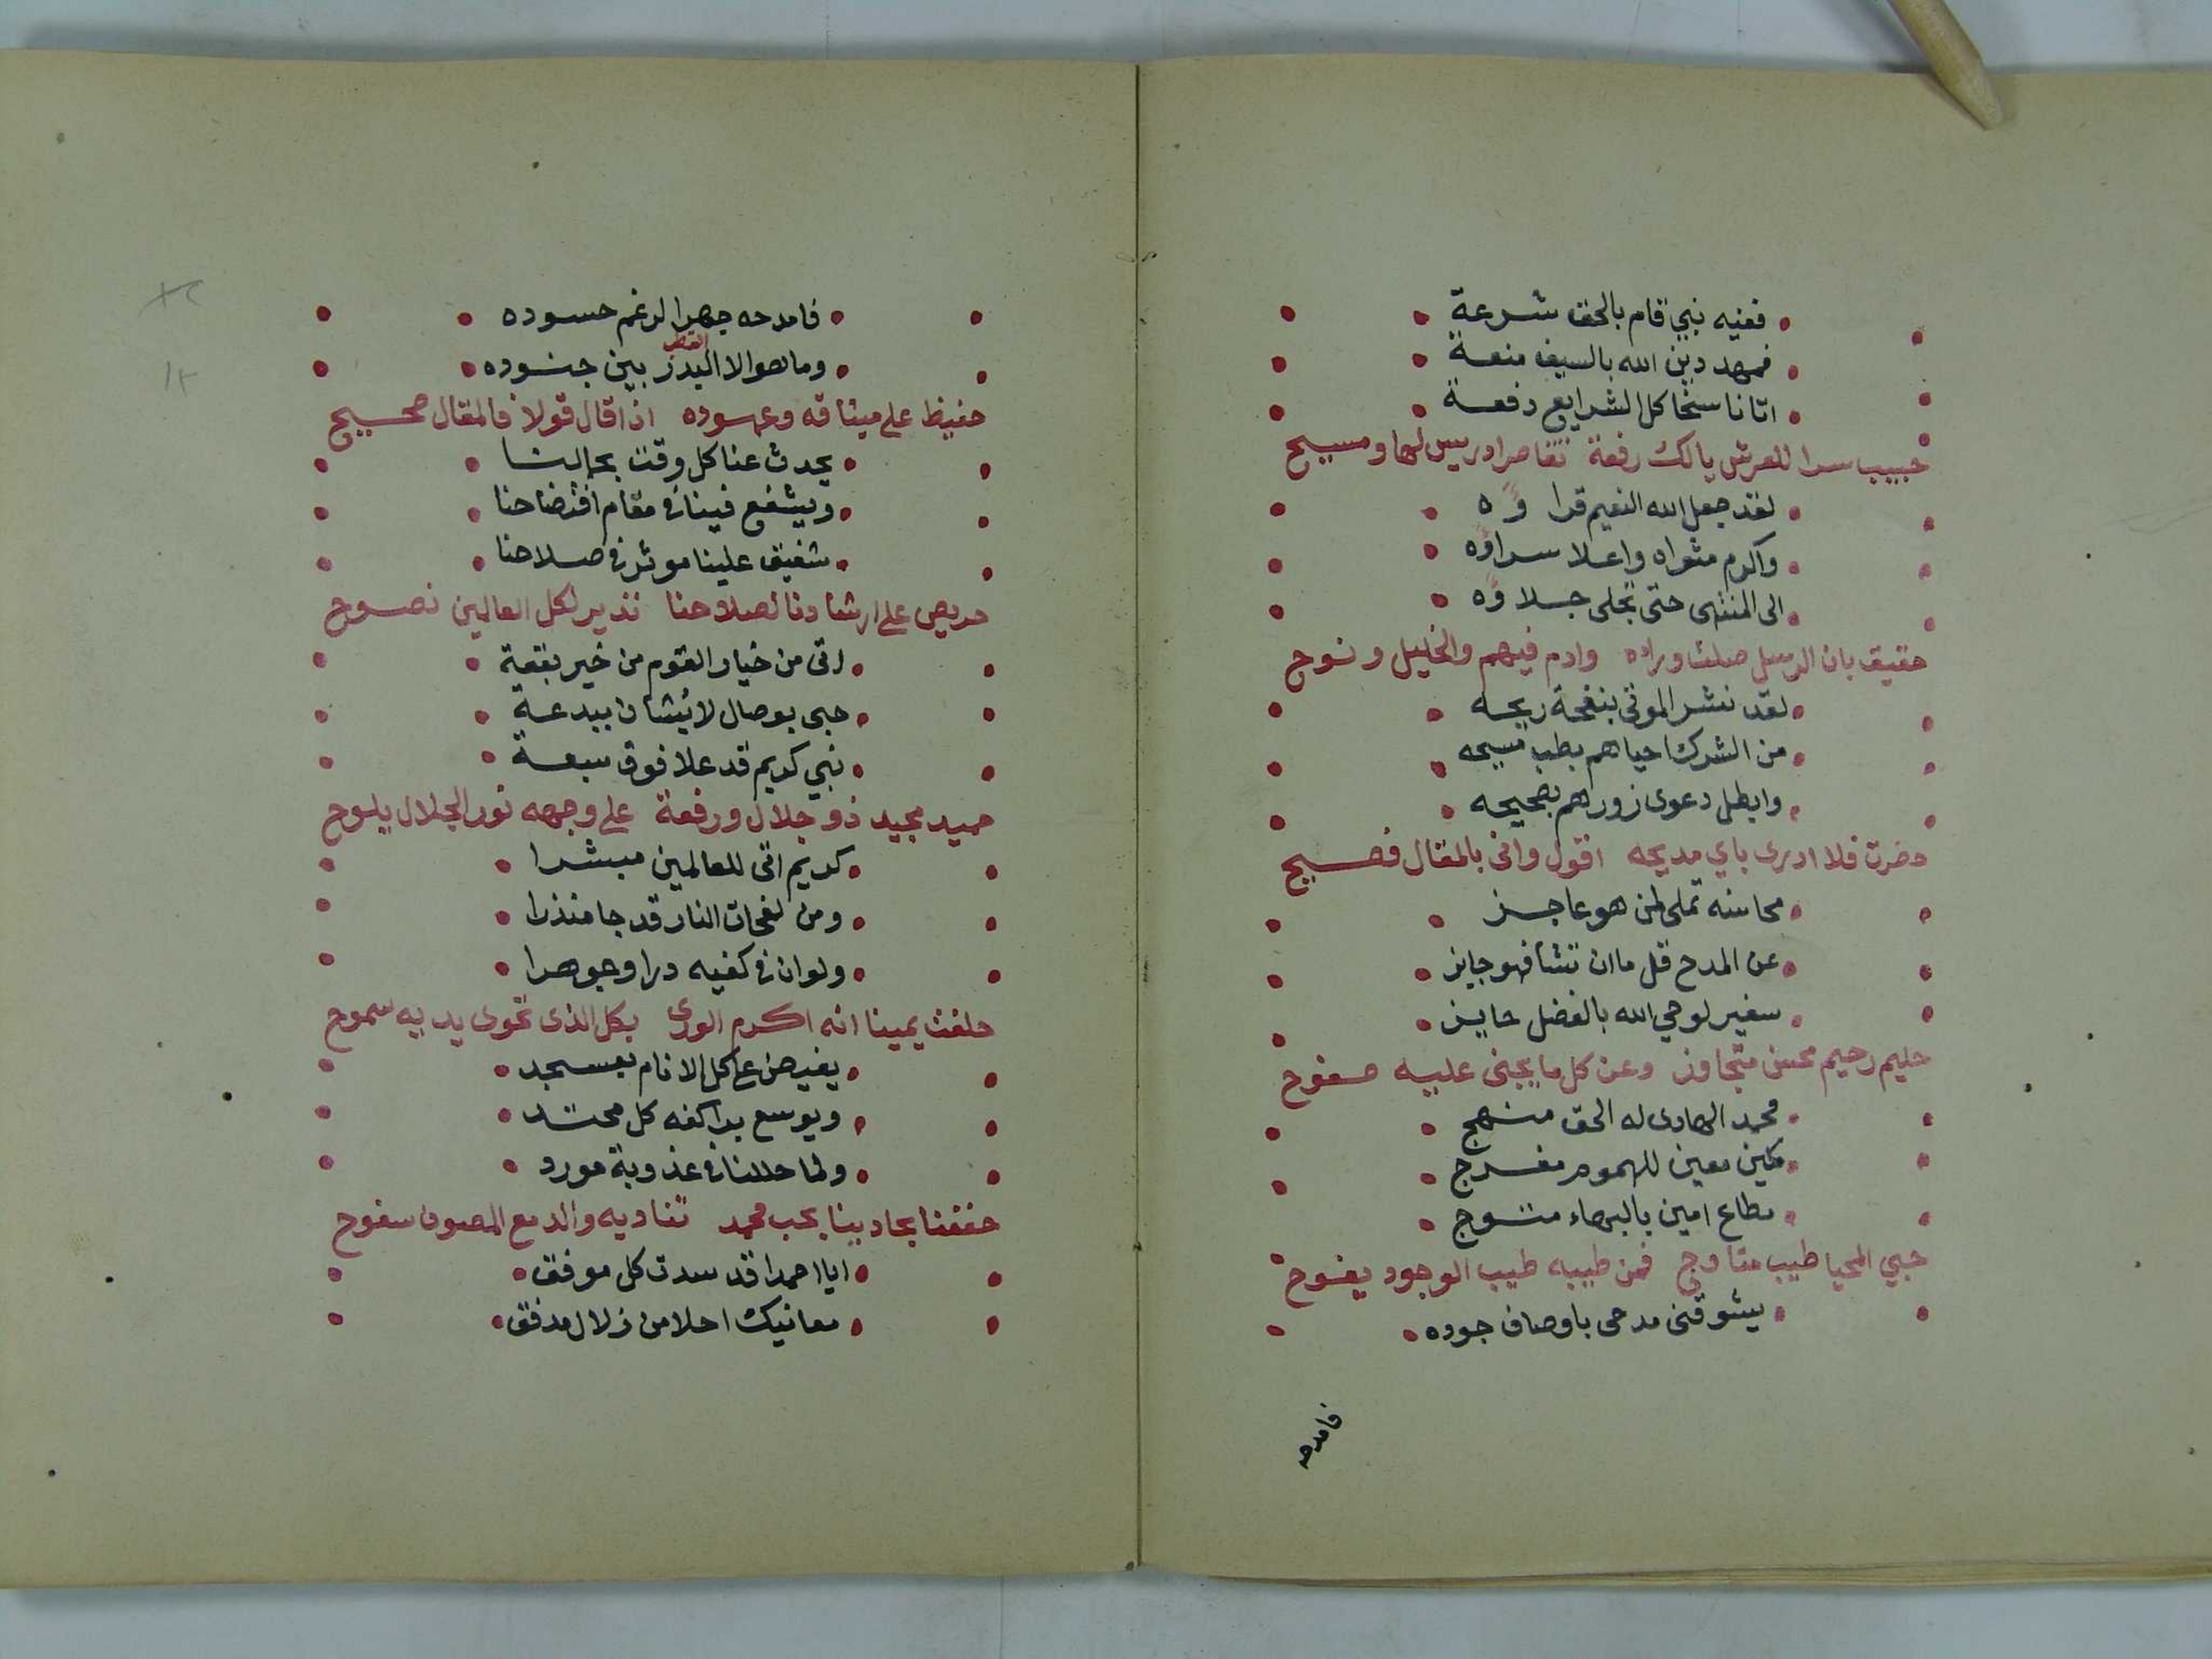 ففيه نبي قام بالحق شرعة
فمهد دين الله بالسيف منعة
اتانا سخا كل الشرايع دفعة
حبيب سرا للعرش يالك رفعة تقاصر ادريس لها ومسيح
لقد جعل الله النعيم قراؤه
واكرم مثواه واعلا سراؤه
الى المنتهى حتى تجلى جلاؤه
حقيق بان الرسل صلت وراه وادم فيهم والخليل ونوح
لقد نشر الموتى بنفحة ريحه
من الشرك احياهم بطب مسيحه
وابطل دعوى زورهم بصحيحه
حضرت فلا ادرى باي مديحه اقول وانى بالمقال فصيح
محاسنه تملى لمن هو عاجز
عن المدح قل ما ان تشا فهو جايز
سفير لوحي الله بالفضل حايز
حليم رحيم محسن متجاوز وعن كل ما يجنى عليه صفوح
محمد الهادى له الحق منهج
مكين معين للهموم مفرج
مطاع امين بالبهاء متوج
حيي المحيا طيب متاوج فمن طيبه طيب الوجود يفوح
يشوقنى مدحى باوصاف جوده
فامدحه
فامدحه جهرا لرغم حسوده
وما هو الا البدر بين جنوده
القطر
حفيظ على ميثاقه وعهوده اذا قال قولا فالمقال صحيح
يحدث عنا كل وقت بحالنا
ويشفع فينا فى مقام افتضاحنا
شفيق علينا موثر فى صلاحنا
حريص على ارشادنا لصلاحنا نذير لكل العالمين نصوح
اتى من خيار القوم من خير بقعة
حبى بوصال لا يشان ببدعة
نبي كريم قد علا فوق سبعة
حميد مجيد ذو جلال ورفعة على وجهه نور الجلال يلوح
كريم اتى للعالمين مبشرا
ومن لفحات النار قد جا منذرا
ولو ان فى كفيه درا وجوهرا
حلفت يمينا انه اكرم الورى بكل الذى تحوى يديه سموح
يفيض على كل الانام بعسجد
ويوسع بدا كفه كل محتد
ولما حللنا فى عذوبة مورد
حففنا بحادينا بحب محمد نناديه والدمع المصون سفوح
ايا احمدا قد سدت كل موفق
معانيك احلا من زلال مدفق
١٢